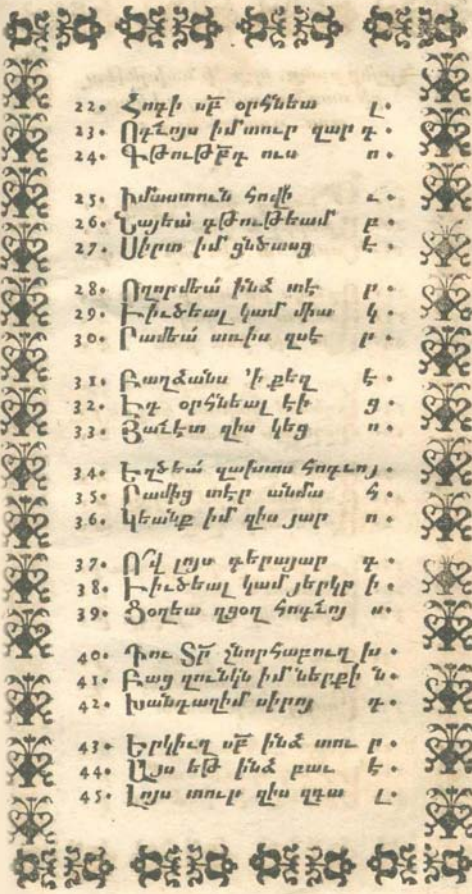 22. Հոգի սբ օրհնեա լ.
23. Ողւոյս իմ տուր զար դ.
24. Գթութեդ ուս ո.
25. Իմաստուն հովի ւ.
26. Նայեա գթութեամ բ.
27. Սիրտ իմ ցնծասց է.
28. Ողորմեա ինձ տէ ր.
29. Նիւծեալ կամ միա կ.
30. Րամեա տուիս զսէ ր.
31. Բաղձանս ՚ի քեզ է.
32. Եդ օրհնեալ էի ց.
33. Յաւէտ զիս կեց ո.
34. Եղծեա զախտս հոգւոյ.
35. Րամից տէր անմա հ.
36. Կեանք իմ զիս յար ո.
37. Ո՛վ լոյս գերայար գ.
38. Նիւծեալ կամ յերկր ի.
39. Ցօղեա զցօղ հոգւոյ ս.
40. Դու Տր շնորհաբուղ խ.
41. Բաց զունկն իմ ներքի ն.
42. Խանդաղիմ սիրոյ դ.
43. Երկիւղ սբ ինձ տու ր.
44. Այս եթ ինձ բաւ է.
45. Լոյս տուր զիս զգա լ.